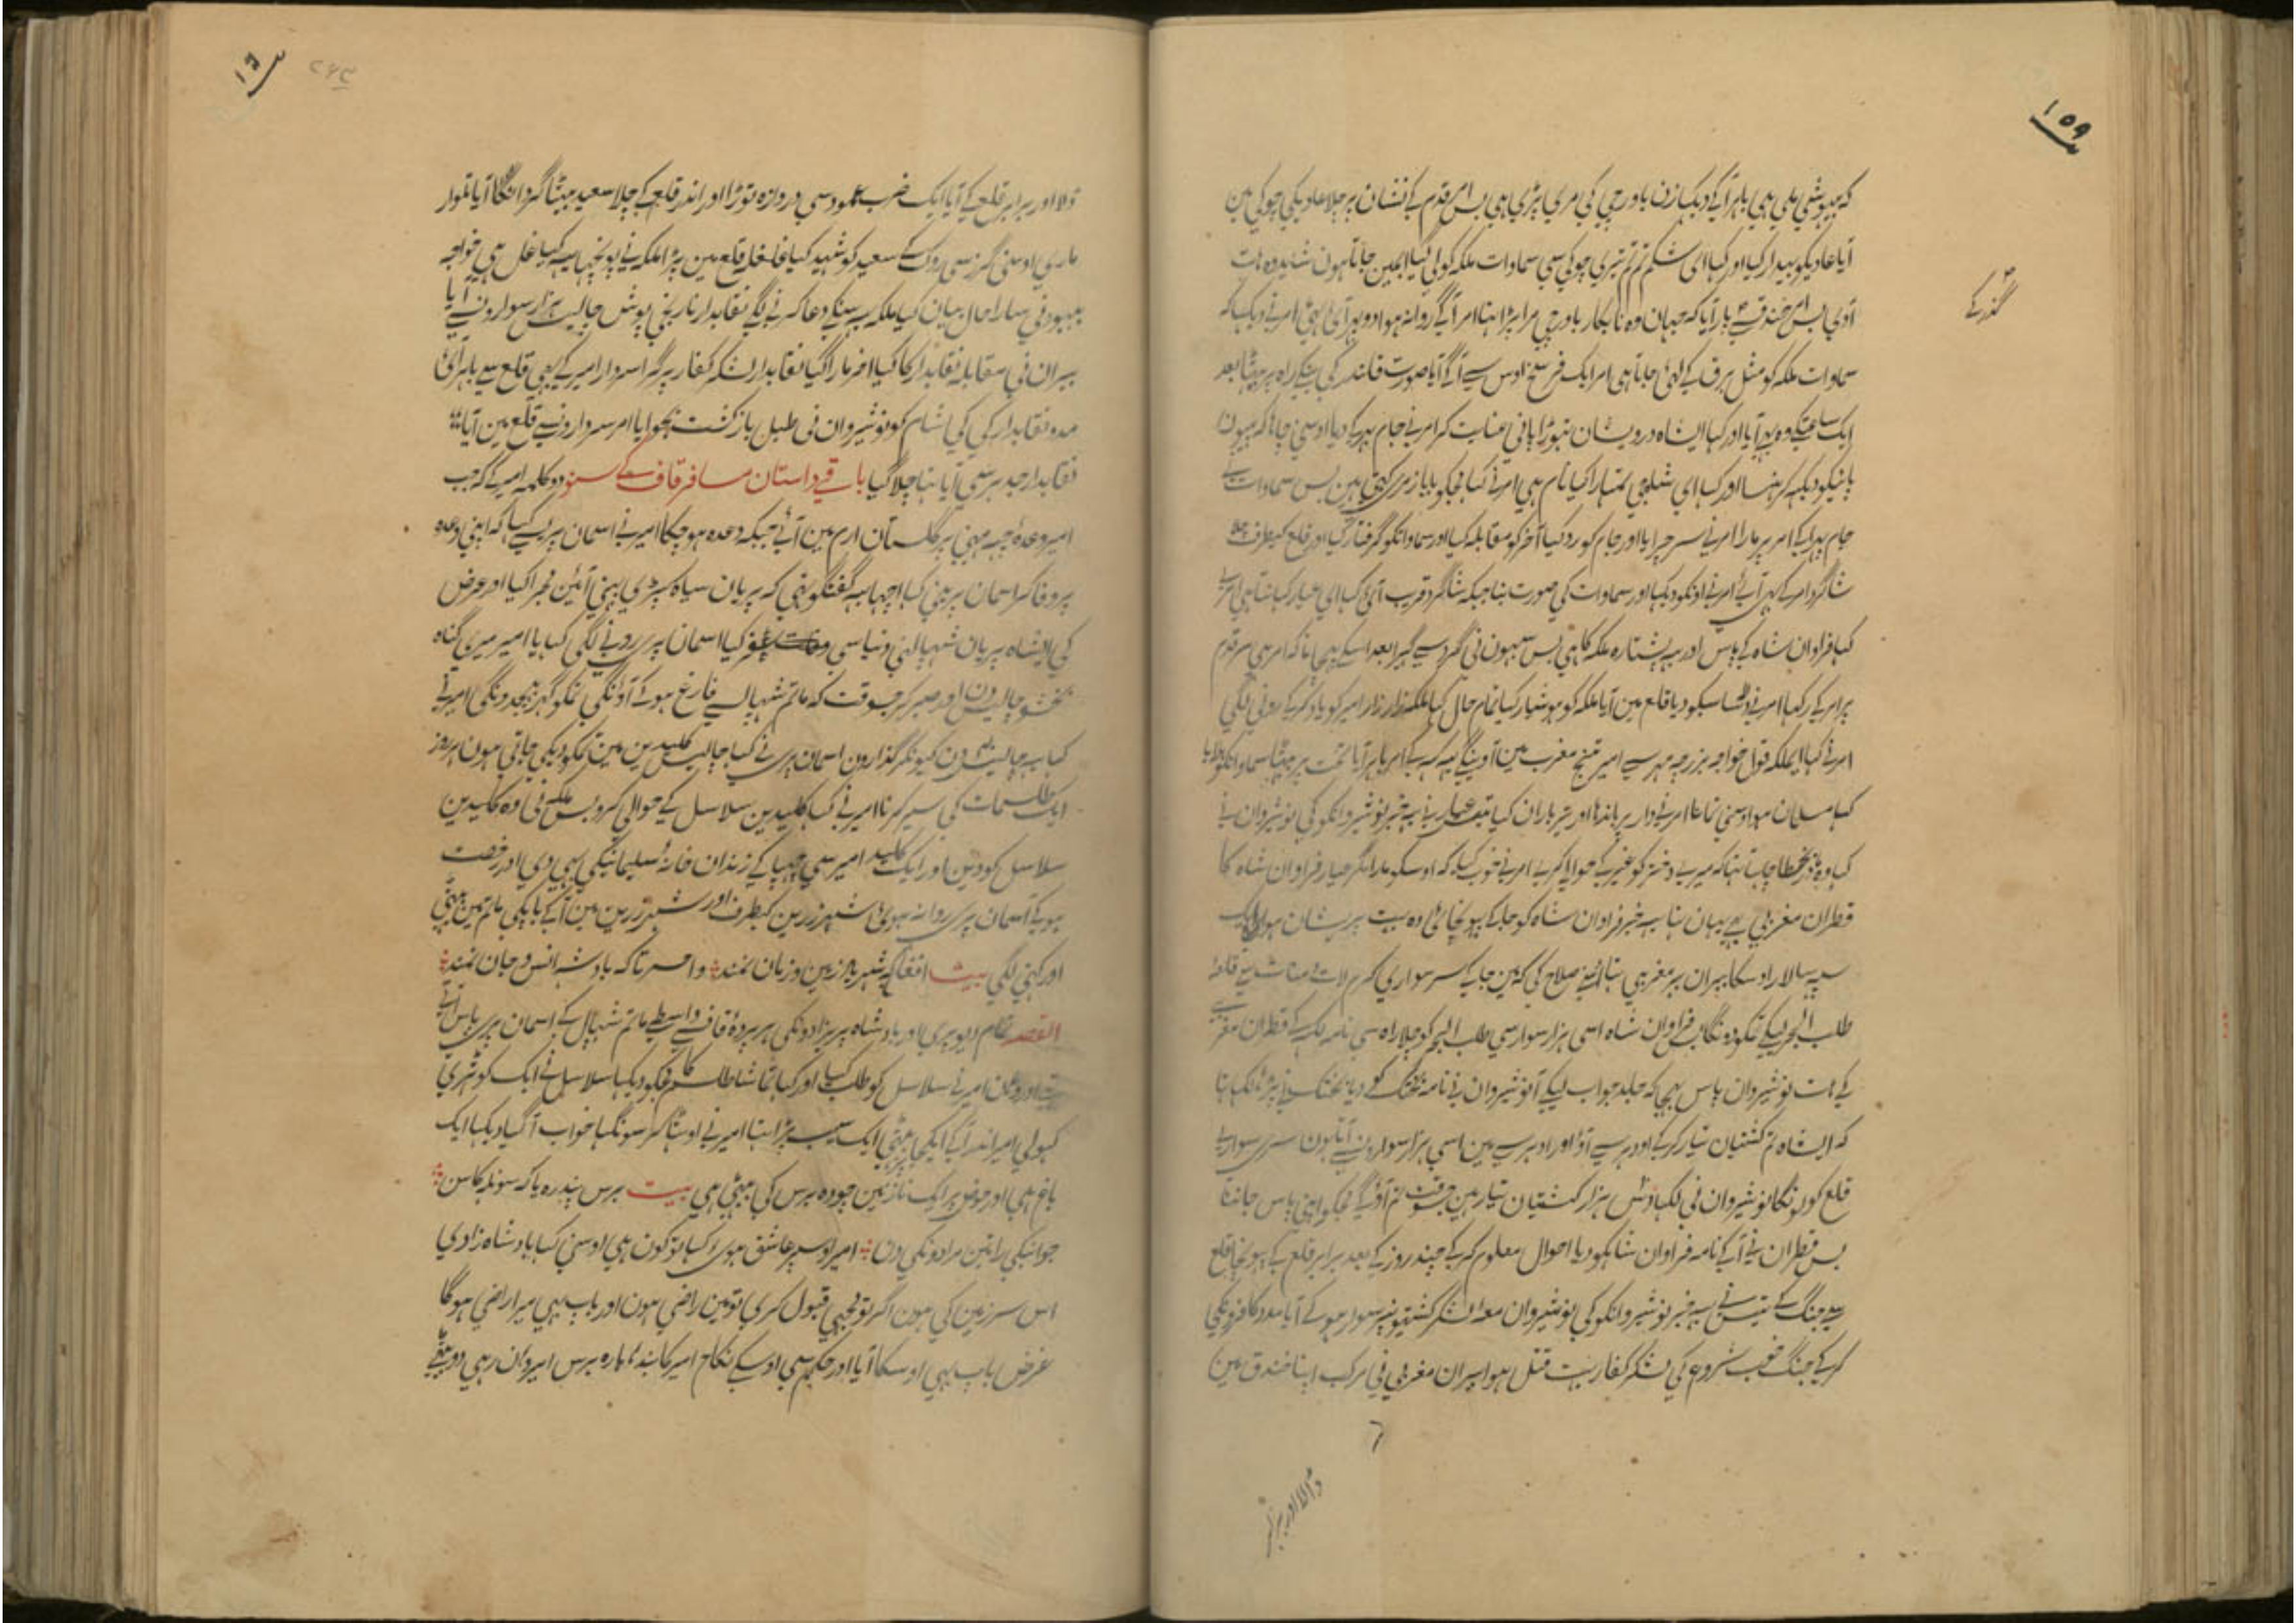 ۱۵۹
کہ بیہوشی ملی ہی باہر آ کے دیکہا زن باورچی کی مری پڑی ہی بس امر قدم کے نشان پر چلا عادیکی چوکی مین
آیا عادیکو بیدار کیا اور کہا ای شکم تم تیری چوکی سی سماوات ملکہ کو لی گیا ابہین جاتا ہون شاید وہ ہات
آوی بس امر خندق سے پار آیا کہ جہان وہ نابکار باورچی مرا پڑا تہا امر آگے روانہ ہوا
گذر کے
سماوات ملکہ کو مثل برق کے لئی جاتا ہی امر ایک فرسخ اوس سے آگے آیا صورت قلندر کی بنکے راہ پر بیٹہا بعد
ایک ساعتکے وہ بہی آیا اور کہا ایشاہ درویشان تہوڑا پانی عنایت کر امر نے جام بہر کے دیا اوسنی چاہا کہ پیون
پانیکو دیکہہ کر ہنسا اور کہا ای شیلجی تمہارا کیا نام ہی امر نے کہا مجکو بابا زمری کہتی ہین بس سماوات نے
جام بہرا کے امر پر مارا امر نے سر چرایا اور جام کو رد کیا آخر کو مقابلہ کیا اور سماواتکو گرفتار کیا اور قلع کیطرف چلا
شاگرد امر کے بہی آئے امر نے اونکو دیکہا اور سماوات کی صورت بنا جبکہ شاگرد قریب آئی کہا ای عیار کہا جاتا ہی امر نے
کہا فراوان شاہ کے پاس اور یہ پشتارہ ملکہ کا ہی بس سبہون نی گرد سے گہیرا بعد اسکے پہچانا کہ امر ہی سر قدم
پر امر کے رکہا امر نے دلاسا سبکو دیا قلع مین آیا ملکہ کو ہوشیار کیا تمام حال کہا ملکہ زار زار امیر کو یاد کرکے رونی لگی
امر نے کہا ایملکہ قول خواجہ بزرجمہر سے امیر تنج مغرب مین آوینگے یہ کہہ کے امر باہر آیا تخت پر بیٹہا سماواتکو بولایا
کہا مسلمان ہو اوسنی نمانا امر نے دار پر باندہا اور تیرباران کیا عیار نے یہ خبر نوشیروانکو کی نوشیروان نے
کہا وہ چاہتا تہا کہ میرے دختر کو غیر کے حوالا کرے امر نے خوب کیا کہ اوسکو مارا مگر عیار فراوان شاہ کا
قطران مغربی بہی یہان تہا یہ خبر فراوان شاہ کو جا کے پہونچائی وہ بہت پریشان ہوا ایک
سپہ سالار اوسکا بیران بربر مغربی تہا اوسنے صلاح کی کہ مین جا کے سرسواری کرم لات و منات سے قلعہ
طلب البحر لیکے تمکو دونگا بس فراوان شاہ اسی ہزار سوار سی طلب البحر کو چلا راہ سی نامہ لکہہ کے قطران مغربی
کے ہات نوشیروان پاس بہیجا کہ جلد جواب لیکے آ نوشیروان نے نامہ بختک کو دیا بختک نے پڑہا لکہا تہا
کہ ایشاہ تم کشتیان تیار کرکے اودہر سے آؤ اور ادہر سے مین اسی ہزار سوارونسے آتا ہون سرسواری
قلع کو لونگا نوشیروان نی لکہا دس ہزار کشتیان تیار ہین جسوقت تم آؤگے مجکو اپنی پاس جاننا
بس قطران نے آ کے نامہ فراوان شاہکو دیا احوال معلوم کرکے چند روز کے بعد برابر قلع کے پہونچا قلع
سے جنگ کے یہ خبر نوشیروانکو کی نوشیروان معہ لشکر کشتیونپر سوار ہو کے آیا مدد کافرونکی
کرکے جنگ خوب شروع کی لشکر کفار بہت قتل ہوا بیران مغربی نی مرکب اپنا خندق مین
ڈالا اور برابر
۱۶
ڈالا اور برابر قلع کے آیا ایک ضرب عمود سی دروازہ توڑا اور اندر قلع کے چلا سعید بیٹا گرد آیا تلوار
ماری اوسنی گرز سی روک کے سعید کو شہید کیا غلغلہ قلع مین پڑا ملکہ نے پونچہا یہ کیا غل ہی خواجہ
بہبود نی سارا حال بیان کیا ملکہ یہ سنکے دعا کرنے لگی نقابدار نارنجی پوش چالیس ہزار سوارونسے آیا
بیران نی مقابلہ نقابدار کا کیا آخر مارا گیا نقابدار لشکر کفار پر گرا سردار امیر کے بہی قلع سے باہر آئی
مدد نقابدار کی کی شام کو نوشیروان نی طبل بازگشت بجوایا امر سردارونسے قلع مین آیا
نقابدار جدہر سے آیا تہا چلا گیا باقی داستان مسافر قاف کے سنو دو کلمہ امیر کے کہ جب
امیر وعدۂ چہہ مہنی پر گلستان ارم مین آئے جبکہ وعدہ ہو چکا امیر نے اسمان پری سے کہا کہ اپنی وعدہ
پر وفا کر اسمان پری نی کہا اچہا یہ گفتگو تہی کہ پریان سیاہ کپڑی پہنی آئین مجرا کیا اور عرض
کی ایشاہ پریان شہپال نی دنیا سی سفر کیا اسمان پری رونے لگی کہا یا امیر میری گناہ
بخشو چالیس دن اور صبر کر جسوقت کہ ماتم شہپال سے فارغ ہو کے آؤنگی تمکو گہر بہیجدونگی امیر نے
کہا یہ چالیس دن کیونکر گذارون اسمان پری نے کہا چالیس کلیدین مین تمکو دیکی جاتی ہون ہر روز
ایک طلسمات کی سیر کرنا امیر نے کہا کلیدین سلاسل کے حوالی کرو بس ملکہ نی وہ کلیدین
سلاسل کو دین اور ایک کلید امیر سی چہپا کے زندان خانۂ سلیمانیکی بہی دی اور رخصت
ہوکے آسمان پری روانہ ہوئی شہر زرین کیطرف اور شہر زرین مین آ کے باپکی ماتم مین بیٹہی
اور کہنی لگی بیت افغان کہ شہریار زمین و زمان نماند وا حسرتا کہ بادشہ انس و جان نماند
القصہ تمام دیو پری اور بادشاہ پریزادونکی ہر پردۂ قاف سے واسطے ماتم شہپال کے اسمان پری پاس آئے
تہے اور وہان امیر نے سلاسل کو طلب کیا اور کہا تماشا طلسم کا مجکو دیکہا سلاسل نے ایک کوٹہری
کہولی امیر اندر آ کے ایک سیب پڑا تہا امیر نے اوٹہا کر سونگہا خواب آ گیا دیکہا ایک
باغ ہی اور حوض پر ایک نازنین چودہ برس کی بیٹہی ہی بیت برس پندرہ یا کہ سولہ کا سن
جوانیکی راتین مرادونکی دن امیر اوسپر عاشق ہوئی کہا تو کون ہی اوسنی کہا بادشاہ زادی
اس سرزمین کی ہون اگر تو مجہی قبول کری تو مین راضی ہون اور باپ بہی میرا راضی ہوگا
غرض باپ بہی اوسکا آیا اور حکم سی اوسکے نکاح امیر کا بندہا بارہ برس امیر وہان رہی دو بیٹے